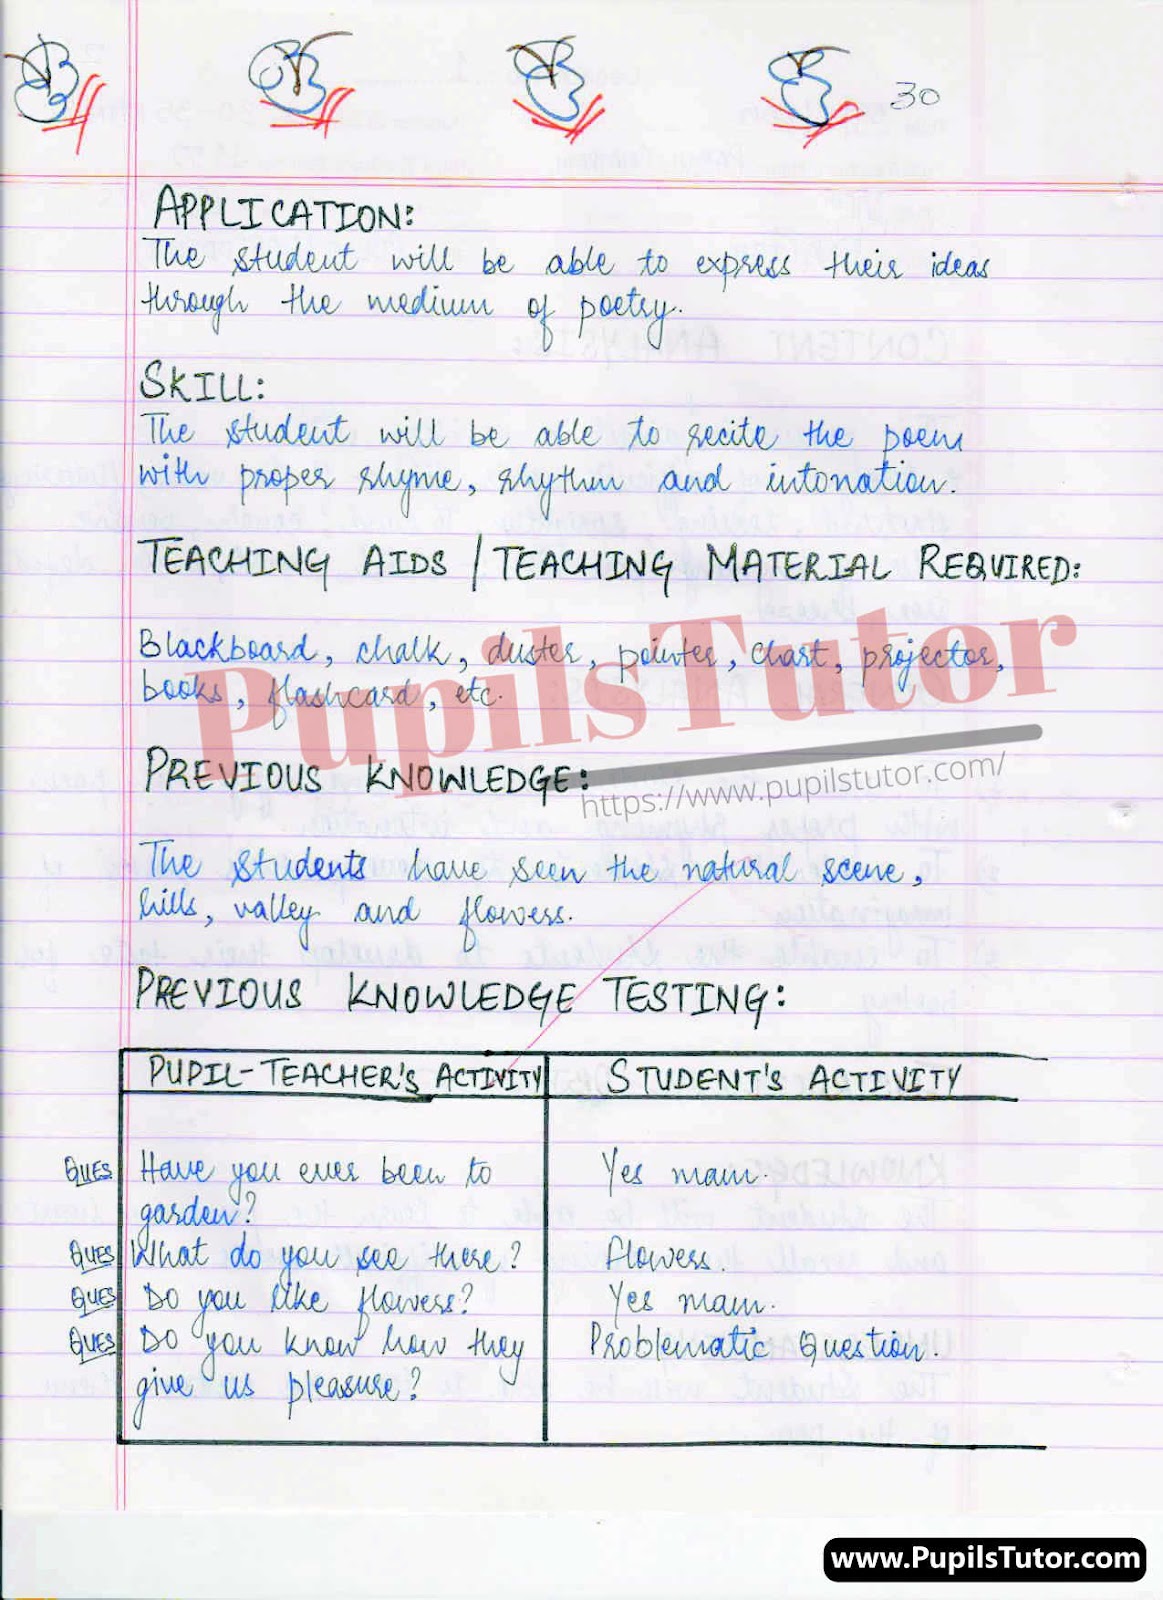 30
APPLICATION:
The student will be able to express their ideas
through the medium of poetry.
SKILL:
The student will be able to recite the poem
with proper rhyme, rhythm and intonation.
TEACHING AIDS / TEACHING MATERIAL REQUIRED:
Blackboard, chalk, duster, pointer, chart, projector,
books, flashcard, etc.
PupilsTutor
PREVIOUS KNOWLEDGE:
https://www.pupilstutor.com/
The students have seen the natural scene,
hills, valley and flowers.
PREVIOUS KNOWLEDGE TESTING:
PUPIL-TEACHER'S ACTIVITY STUDENT'S ACTIVITY
QUES Have you ever been to Yes mam.
garden?
QUES What do you see there? flowers.
QUES Do you like flowers? Yes mam.
QUES Do you know how they Problematic Question.
give us pleasure?
www.PupilsTutor.com